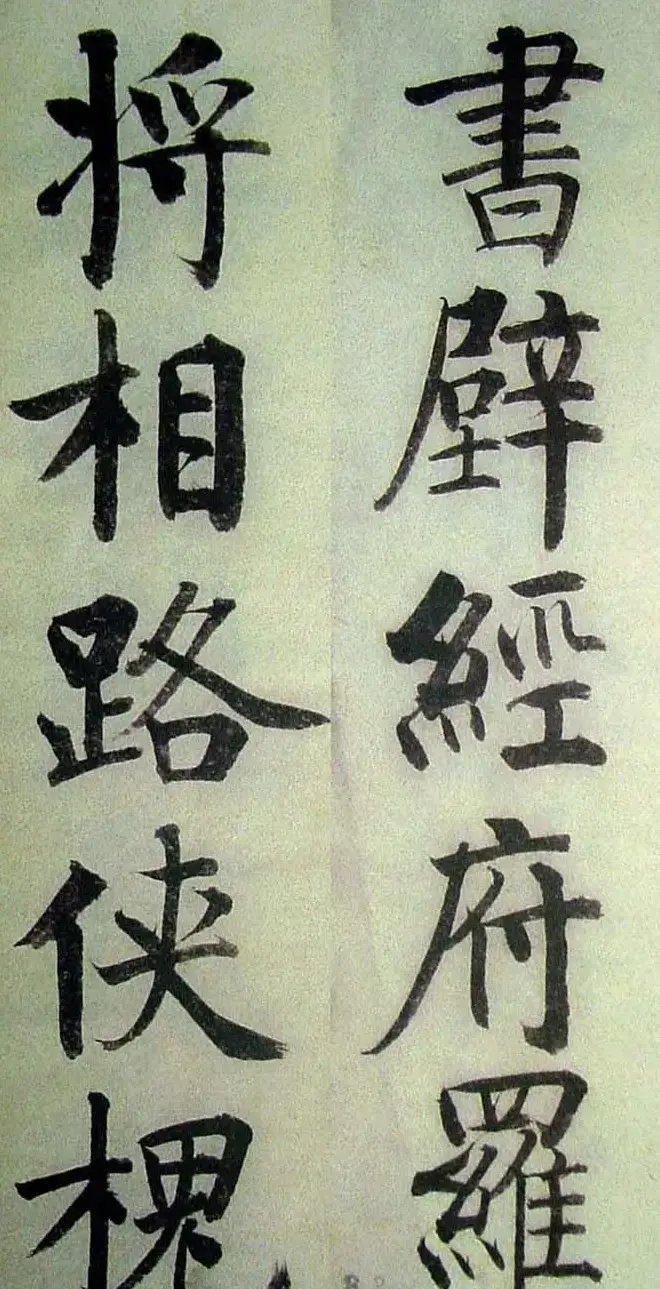 書壁經府羅
将相路侠槐